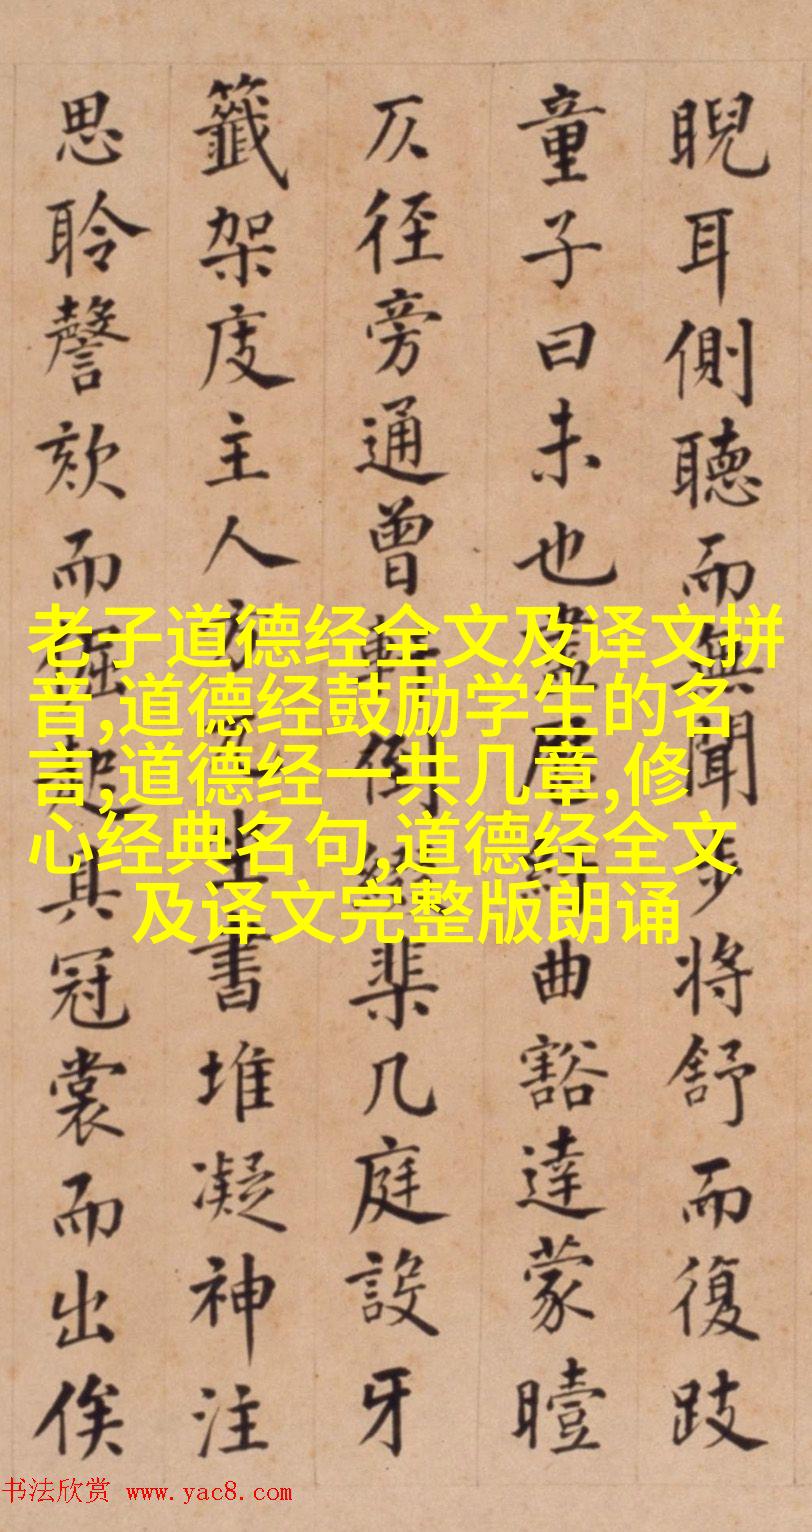 睨耳側聽而無聞步將舒而復跂
童子曰未也扈曲豁達蒙曀
仄徑旁通曾軒倒棐几庭設牙
籤架庋主人方書堆凝神注
思聆謦欬而倔起具冠裳而出俟
老子道德经全文及译文拼
音,道德经鼓励学生的名
言,道德经一共几章,修
心经典名句,道德经全文
及译文完整版朗诵
书法欣赏 www.yac8.com